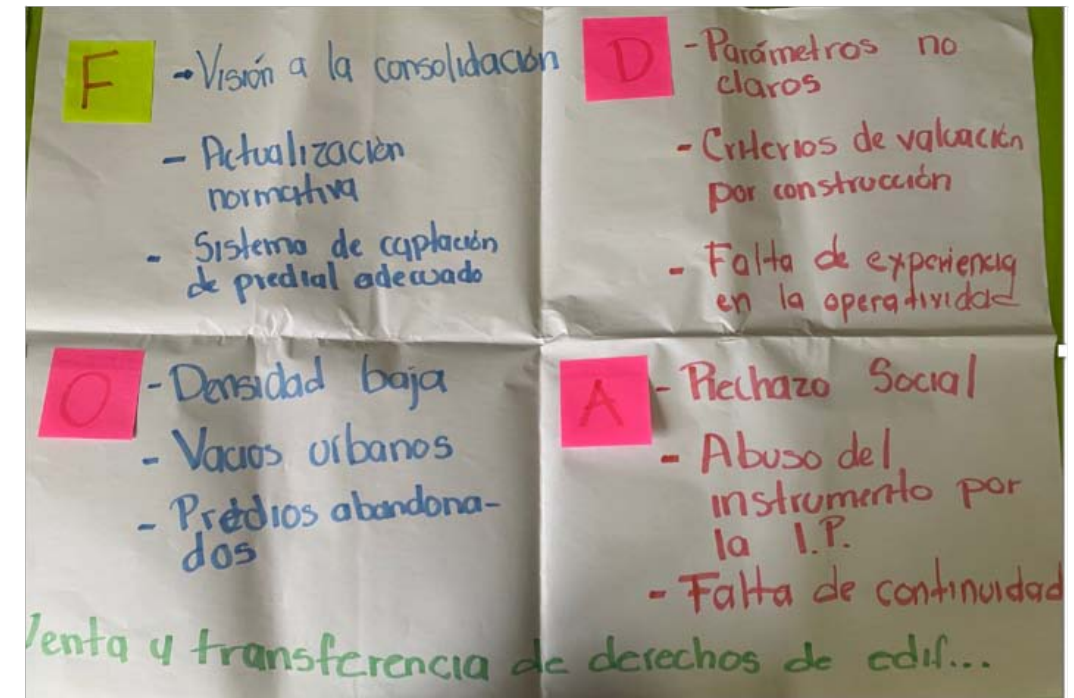 F
→ Visión a la consolidación
- Actualización
normativa
- Sistema de captación
de predial adecuado
D
- Parámetros no
claros
- Criterios de valuación
por construcción
- Falta de experiencia
en la operatividad
O
- Densidad baja
- Vacios urbanos
- Prédios abandona-
dos
A
- Rechazo Social
- Abuso del
instrumento por
la I.P.
- Falta de continuidad
Venta y transferencia de derechos de edif...